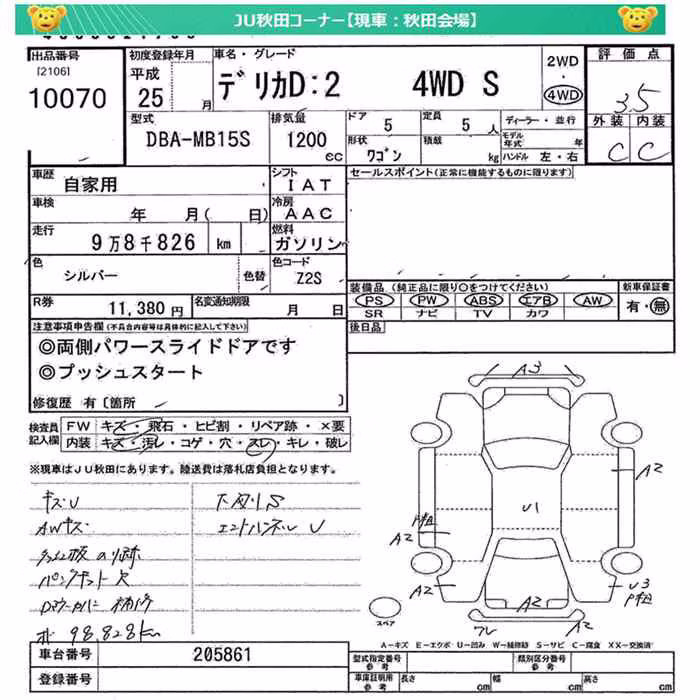 JU秋田コーナー【現車：秋田会場】
出品番号
[2106]
10070
初度登録年月
平成
25 年 月
車名・グレード
デリカD:2 4WD S
2WD
・
4WD
評価点
3.5
外装 内装
C C
型式
DBA-MB15S
排気量
1200
cc
ドア 5
定員 5 人
ディーラー・並行
モデル年式 年
形状 ワゴン
積載 kg
ハンドル 左・右
車歴
自家用
シフト
IAT
セールスポイント(正常に機能するものに限ります)
車検
年 月( 日)
冷房
AAC
走行
9万8千826 km
燃料
ガソリン
色
シルバー
色替
色コード
Z2S
装備品 (純正品に限り〇をつけてください)
PS PW ABS エアB AW
SR ナビ TV カワ
新車保証書
有・無
R券
11,380 円
名変通知期限
月 日
後日品
注意事項申告欄(不具合内容等は具体的に記入して下さい)
◎両側パワースライドドアです
◎プッシュスタート
修復歴 有〔箇所 〕
検査員記入欄
FW キズ・飛石・ヒビ割・リペア跡・×要
内装 キズ・汚レ・コゲ・穴・スレ・キレ・破レ
※現車はJU秋田にあります。陸送費は落札店負担となります。
キズU
AWキズ
パンクキット欠
98,828km
下廻りS
エンドパネル U
A3
A2
U1
A2
A2
U3
A2
A2
ワレ
スペア
A－キズ E－エクボ U－凹み W－補修跡 S－サビ C－腐食 XX－交換済
車台番号
205861
登録番号
型式指定番号
参考
類別区分番号
参考
車庫証明用
参考
長さ cm
幅 cm
高さ cm